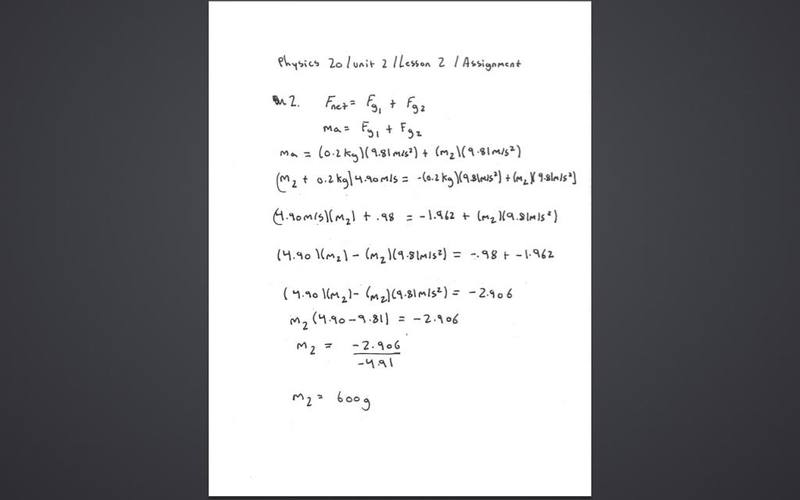 Physics 20 / unit 2 / Lesson 2 / Assignment
2. Fnet = Fg1 + Fg2
ma = Fg1 + Fg2
ma = (0.2kg)(9.81m/s²) + (m2)(9.81m/s²)
(m2 + 0.2kg)4.90m/s = -(0.2kg)(9.81m/s²) + (m2)(9.81m/s²)
(4.90m/s)(m2) + .98 = -1.962 + (m2)(9.81m/s²)
(4.90)(m2) - (m2)(9.81m/s²) = -.98 + -1.962
(4.90)(m2) - (m2)(9.81m/s²) = -2.906
m2(4.90-9.81) = -2.906
m2 = -2.906
-4.91
m2 = 600g